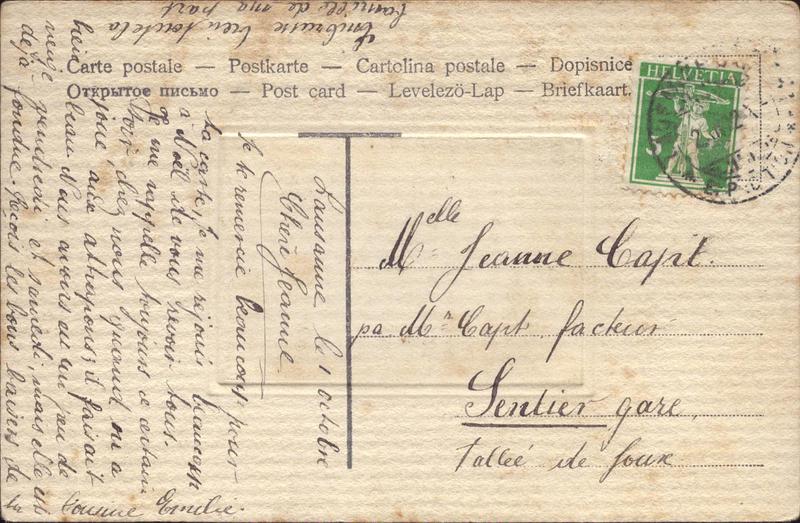 Carte postale — Postkarte — Cartolina postale — Dopisnice
Открытое письмо — Post card — Levelezö-Lap — Briefkaart.
HELVETIA
Melle Jeanne Capt.
pa. Mr Capt, facteur
Sentier gare,
Vallée de Joux
Lausanne le 1 octobre
Chère Jeanne
Je te remercie beaucoup pour
ta carte, je me réjouis beaucoup
à Noël de vous revoir tous.
Je me rappelle toujours ce certain
soir chez vous quand on a
joué aux attrapons; il faisait
beau. Nous avons eu un peu de
neige vendredi et samedi, mais elle est
déjà fondue. Reçois les bons baisers de
ta cousine Emilie.
Embrasse bien toute la
famille de ma part